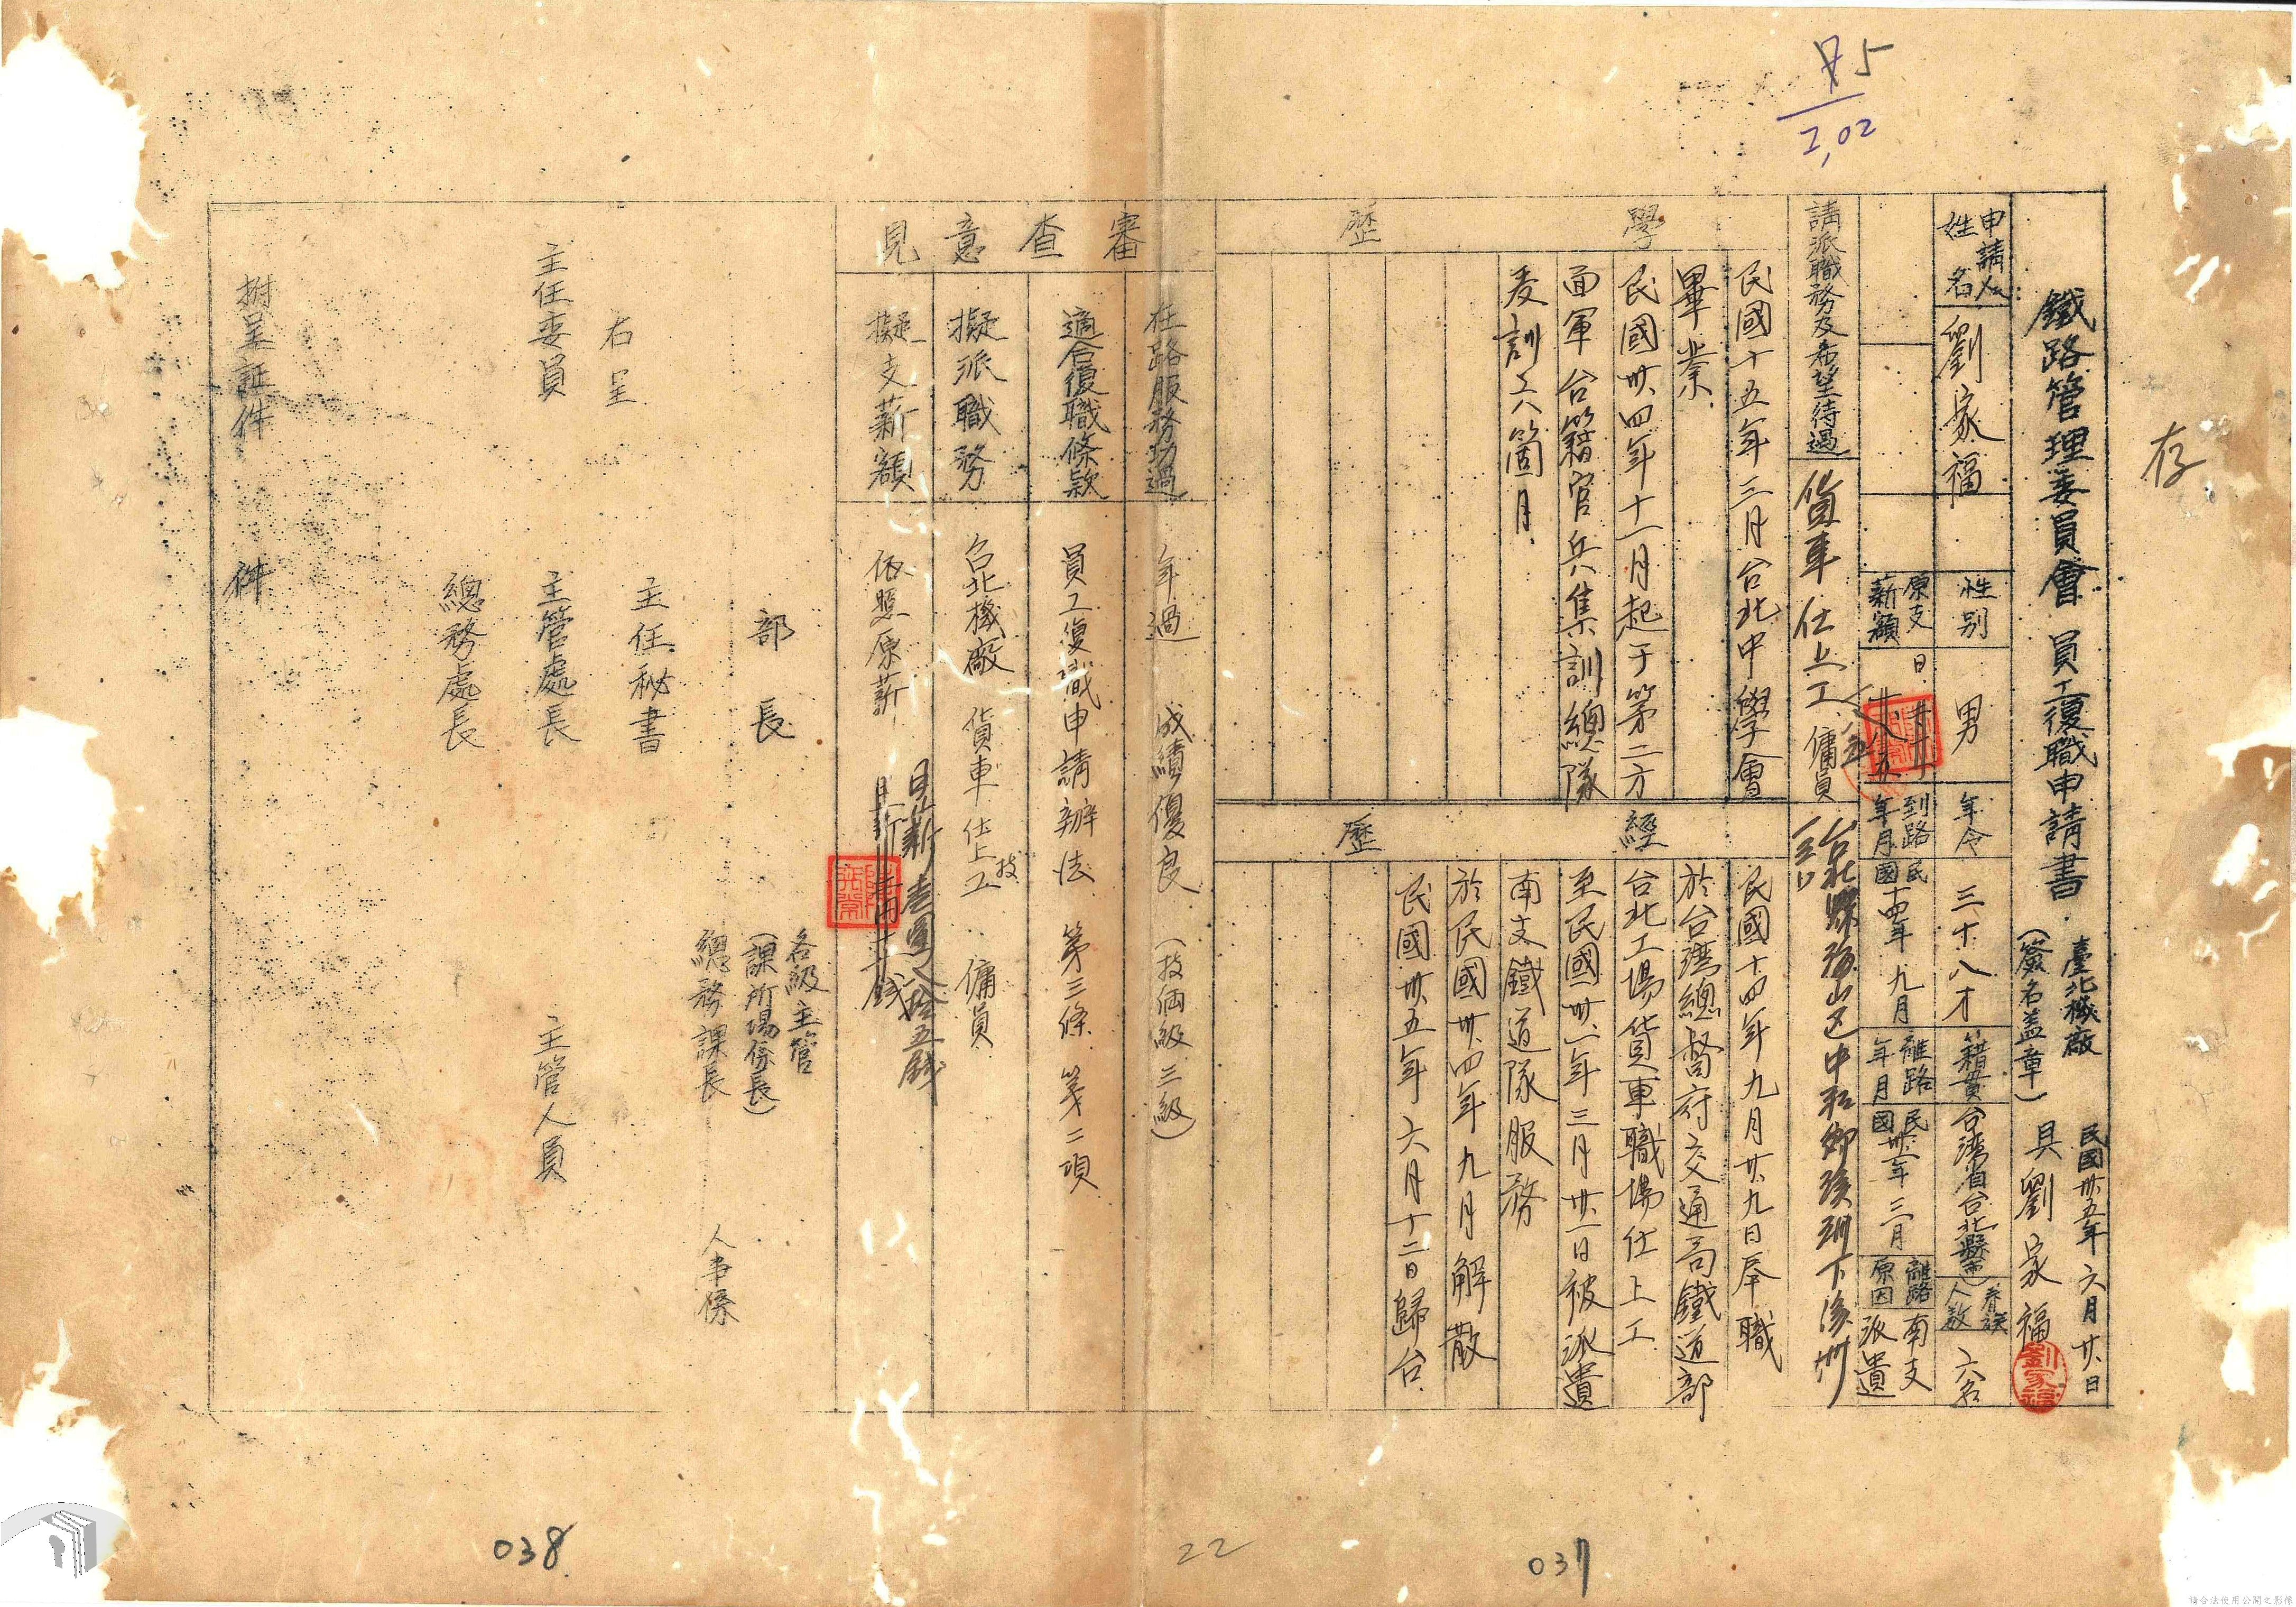 存
鐵路管理委員會 員工復職申請書
臺北機廠 民國卅五年六月廿日
(簽名蓋章) 具 劉家福
劉家福
申請人姓名 劉家福 性別 男 年令 三十八才 籍貫 台灣省台北縣 眷族人數 六名
原支薪額 日 到路年月 民國十四年九月 離路年月 民國卅一年三月 離路原因 南支派遣
請派職務及希望待遇 貨車仕上工 傭員
學歷
民國十五年三月台北中學會
畢業
民國卅四年十一月起于第二方
面軍台籍官兵集訓總隊
受訓六箇月
經歷
民國十四年九月廿九日奉職
於台灣總督府交通局鐵道部
台北工場貨車職場仕上工
至民國卅一年三月廿二日被派遣
南支鐵道隊服務
於民國卅四年九月解散
民國卅五年六月十二日歸台
審查意見
在路服務功過 年過 成績優良 (技術級三級)
適合復職條款 員工復職申請辦法 第三條 第二項
擬派職務 台北機廠 貨車仕上工 技 傭員
擬支薪額 依照原薪 日薪壹圓八拾五錢
部長
各級主管
(課所場係長)
總務課長
人事係
右呈
主任秘書
主任委員
主管處長
主管人員
總務處長
附呈証件 件
75
2,02
038
22
037
請合法使用公開之影像